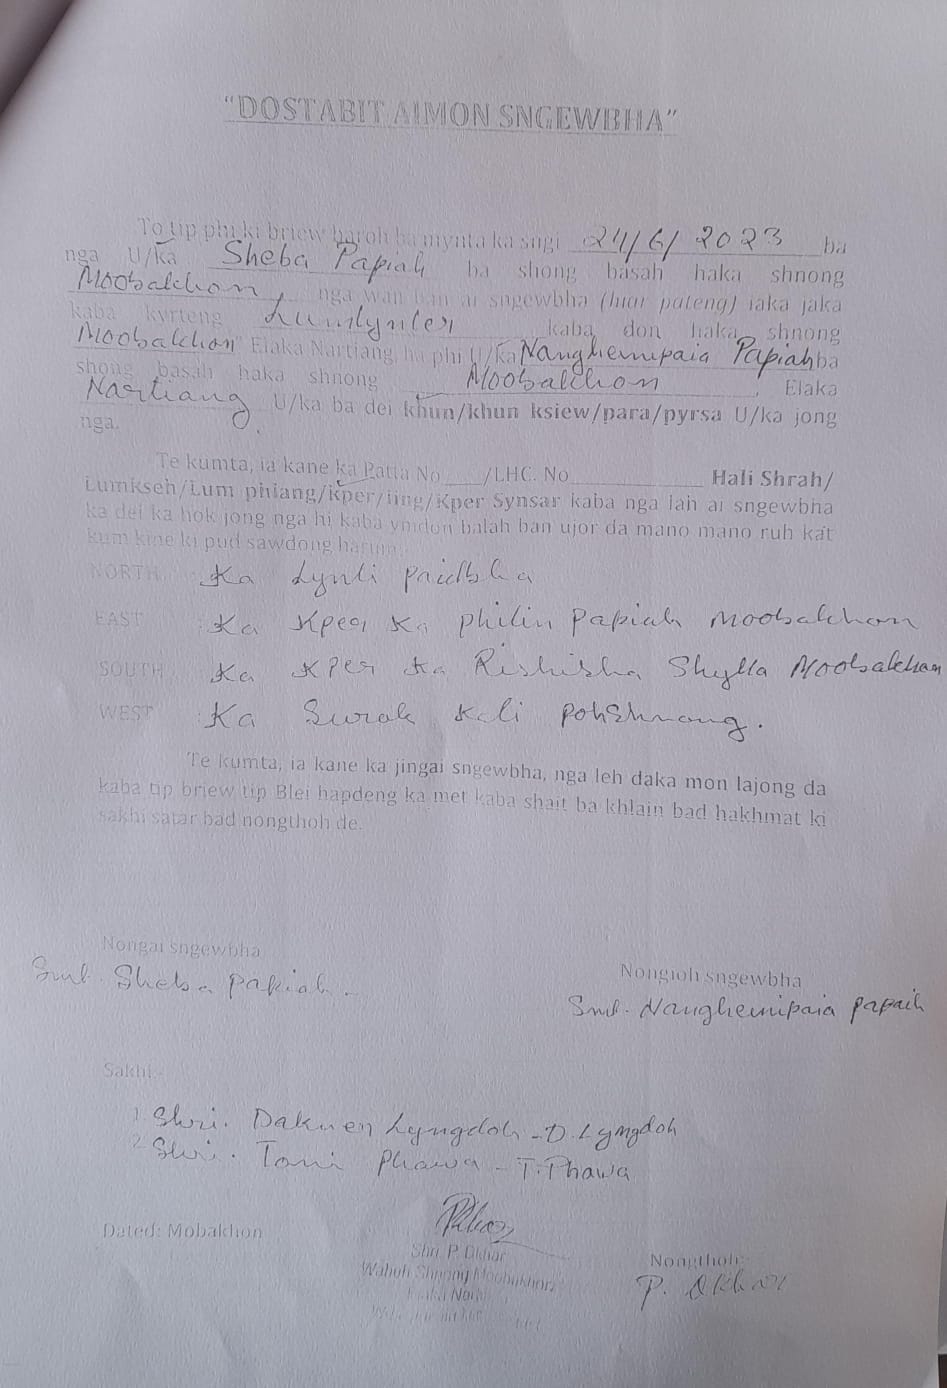 "DOSTABIT AIMON SNGEWBHA"
To tip phi ki briew baroh ba mynta ka sngi 24/6/2023 ba
nga U/Ka Sheba Papiah ba shong basah haka shnong
Moobakhon, nga wan ban ai sngewbha (hiar pateng) iaka jaka
kaba kyrteng Lumlynter kaba don haka shnong
Moobakhon Elaka Nartiang ha phi U/Ka Nanghemipaia Papiah ba
shong basah haka shnong Moobakhon, Elaka
Nartiang U/ka ba dei khun/khun ksiew/para/pyrsa U/ka jong
nga.
Te kumta, ia kane ka Patta No____/LHC. No____________ Hali Shrah/
Lumkseh/Lum phiang/Kper/iing/Kper Synsar kaba nga lah ai sngewbha
ka dei ka hok jong nga hi kaba ymdon balah ban ujor da mano mano ruh kat
kum kine ki pud sawdong harum:
NORTH Ka Lynti paidbha
EAST Ka Kper Ka Philin Papiah Moobakhon
SOUTH Ka Kper Ka Rishisha Shylla Moobakhon
WEST Ka Surok Kali Pohshnong.
Te kumta, ia kane ka jingai sngewbha, nga leh daka mon lajong da
kaba tip briew tip Blei hapdeng ka met kaba shait ba khlain bad hakhmat ki
sakhi satar bad nongthoh de.
Nongai sngewbha
Smt. Sheba Papiah
Nongioh sngewbha
Smt. Nanghemipaia Papaih
Sakhi:-
1. Shri. Dakmen Lyngdoh - D. Lyngdoh
2. Shri. Tomi Phawa - T. Phawa
Dated: Mobakhon
Shri P. Dkhar
Waheh Shnong Moobakhon
Nongthoh:
P. Dkhar